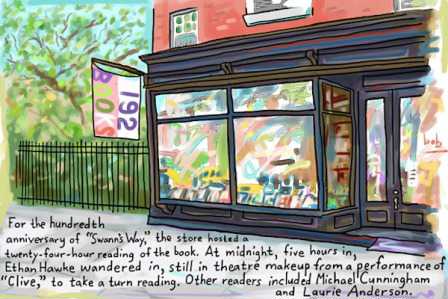 192
BOOKS
bob
For the hundredth
anniversary of "Swann's Way," the store hosted a
twenty-four-hour reading of the book. At midnight, five hours in,
Ethan Hawke wandered in, still in theatre makeup from a performance of
"Clive," to take a turn reading. Other readers included Michael Cunningham
and Laurie Anderson.